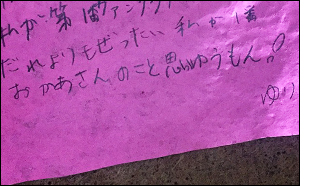 私が第1番ファンクラ
だれよりもぜったい私が1番
おかあさんのこと思ゆうもん!!
ゆり